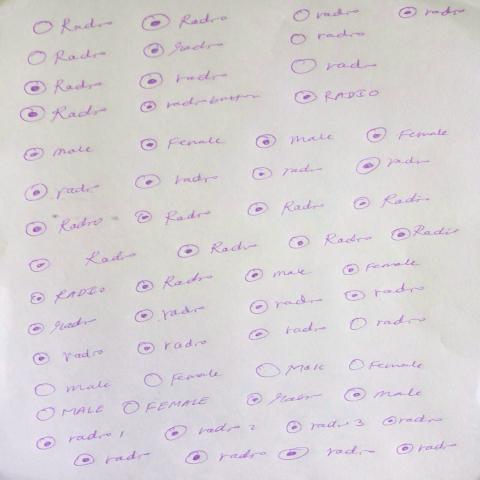 ○ Radio ⦿ Radio ○ radio ⦿ radio
○ Radio ⦿ Radio ○ radio
⦿ Radio ⦿ radio ○ radio
⦿ Radio ⦿ radiobutton ⦿ RADIO
⦿ male ⦿ Female ⦿ male ⦿ Female
⦿ radio ⦿ radio ⦿ radio ⦿ radio
⦿ Radio ⦿ Radio ⦿ Radio ⦿ Radio
⦿ Radio ⦿ Radio ⦿ Radio ⦿ Radio
⦿ RADIO ⦿ Radio ⦿ male ⦿ Female
⦿ Radio ⦿ radio ⦿ radio ⦿ radio
⦿ radio ⦿ radio ⦿ radio ○ radio
○ male ○ Female ○ Male ○ Female
○ MALE ○ FEMALE ⦿ Radio ⦿ male
⦿ radio 1 ⦿ radio 2 ⦿ radio 3 ⦿ radio
⦿ radio ⦿ radio ⦿ radio ⦿ radio